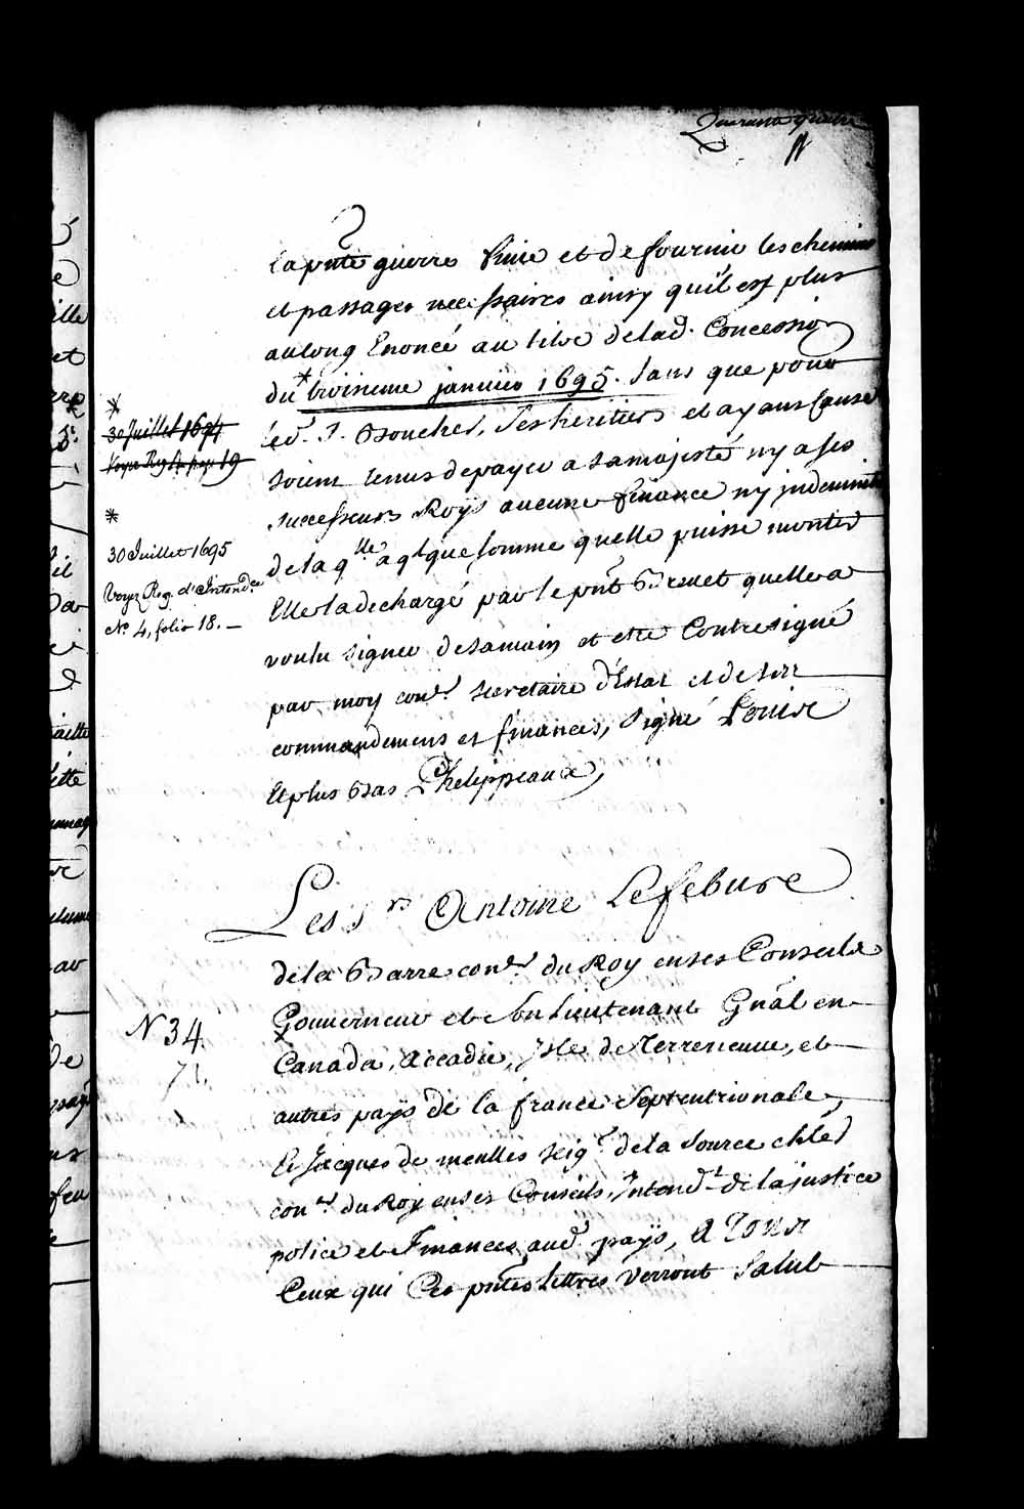 Quarante quatre
la pnte guerre finie et de fournir les chemins
et passages necessaires ainsy quil est plus
au long Enoncé au titre de lad. Concession
du * troisieme janvier 1695. Sans que pour
S. Boucher, Ses heritiers et ayans Cause
soient tenus de payer a sa majesté ny a ses
successeurs Roys aucune finance ny jndemnité
de laqlle a qlque somme quelle puisse monter
Elle la dechargé par le pnt Brevet quelle a
voulu signer de sa main et etre Contresigné
par moy coner secretaire d'Estat et de ses
commandemens et finances, Signé Louis
et plus bas Phelippeaux,
*
30 Juillet 1694
Voyez Reg. page 19
*
30 Juillet 1695
Voyez Reg. d'Intendce
No. 4, folio 18. —
Les Srs Antoine Lefebure
de la Barre coner du Roy en ses Conseils
Gouverneur et Son Lieutenant Gnãl en
Canada, Accadie, Jsle de Terreneuve, et
autres païs de la france Septentrionale,
Et Jacques de meulles seigr de la Source chler
coner du Roy en ses Conseils, Jntendt de la justice
police et Finances aud. païs, A Tous
Ceux qui Ces pntes Lettres Verront Salut
N 34.
71.